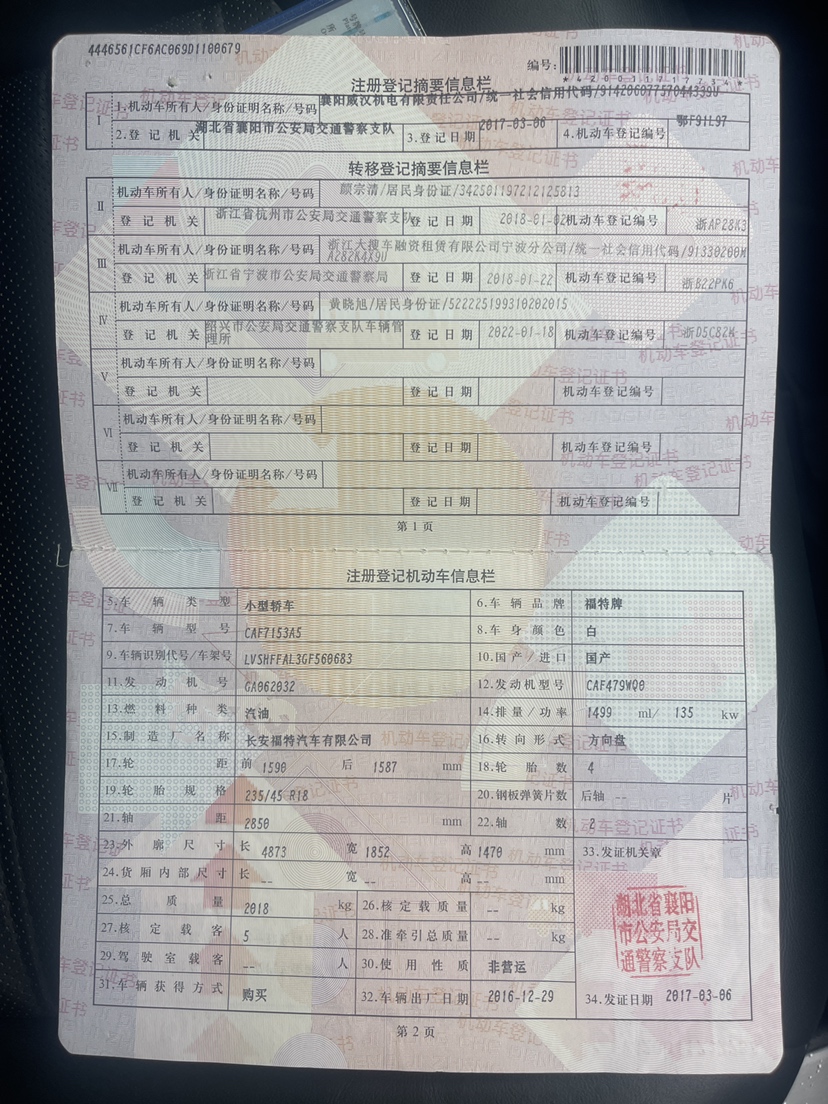 4446561CF6AC069D1100679
编号:
*420031717234*
注册登记摘要信息栏
I 1.机动车所有人/身份证明名称/号码 襄阳威汉机电有限责任公司/统一社会信用代码/91420607757044339U
2.登记机关 湖北省襄阳市公安局交通警察支队 3.登记日期 2017-03-06 4.机动车登记编号 鄂F91L97
转移登记摘要信息栏
II 机动车所有人/身份证明名称/号码 颜宗清/居民身份证/342501197212125813
登记机关 浙江省杭州市公安局交通警察支队 登记日期 2018-01-02 机动车登记编号 浙AP28K3
III 机动车所有人/身份证明名称/号码 浙江大搜车融资租赁有限公司宁波分公司/统一社会信用代码/91330200M
A282K4X9U
登记机关 浙江省宁波市公安局交通警察局 登记日期 2018-01-22 机动车登记编号 浙B22PK6
IV 机动车所有人/身份证明名称/号码 黄晓旭/居民身份证/522225199310202015
登记机关 绍兴市公安局交通警察支队车辆管 登记日期 2022-01-18 机动车登记编号 浙D5C82K
理所
V 机动车所有人/身份证明名称/号码
登记机关 登记日期 机动车登记编号
VI 机动车所有人/身份证明名称/号码
登记机关 登记日期 机动车登记编号
VII 机动车所有人/身份证明名称/号码
登记机关 登记日期 机动车登记编号
第1页
注册登记机动车信息栏
5.车辆类型 小型轿车 6.车辆品牌 福特牌
7.车辆型号 CAF7153A5 8.车身颜色 白
9.车辆识别代号/车架号 LVSHFFAL3GF560683 10.国产/进口 国产
11.发动机号 GA062032 12.发动机型号 CAF479WQ0
13.燃料种类 汽油 14.排量/功率 1499 ml/ 135 kw
15.制造厂名称 长安福特汽车有限公司 16.转向形式 方向盘
17.轮距 前 1590 后 1587 mm 18.轮胎数 4
19.轮胎规格 235/45 R18 20.钢板弹簧片数 后轴 -- 片
21.轴距 2850 mm 22.轴数 2
23.外廓尺寸 长 4873 宽 1852 高 1470 mm 33.发证机关章
24.货厢内部尺寸 长 -- 宽 -- 高 -- mm
25.总质量 2018 kg 26.核定载质量 -- kg
27.核定载客 5 人 28.准牵引总质量 -- kg
29.驾驶室载客 -- 人 30.使用性质 非营运
湖北省襄阳
市公安局交
通警察支队
31.车辆获得方式 购买 32.车辆出厂日期 2016-12-29 34.发证日期 2017-03-06
第2页